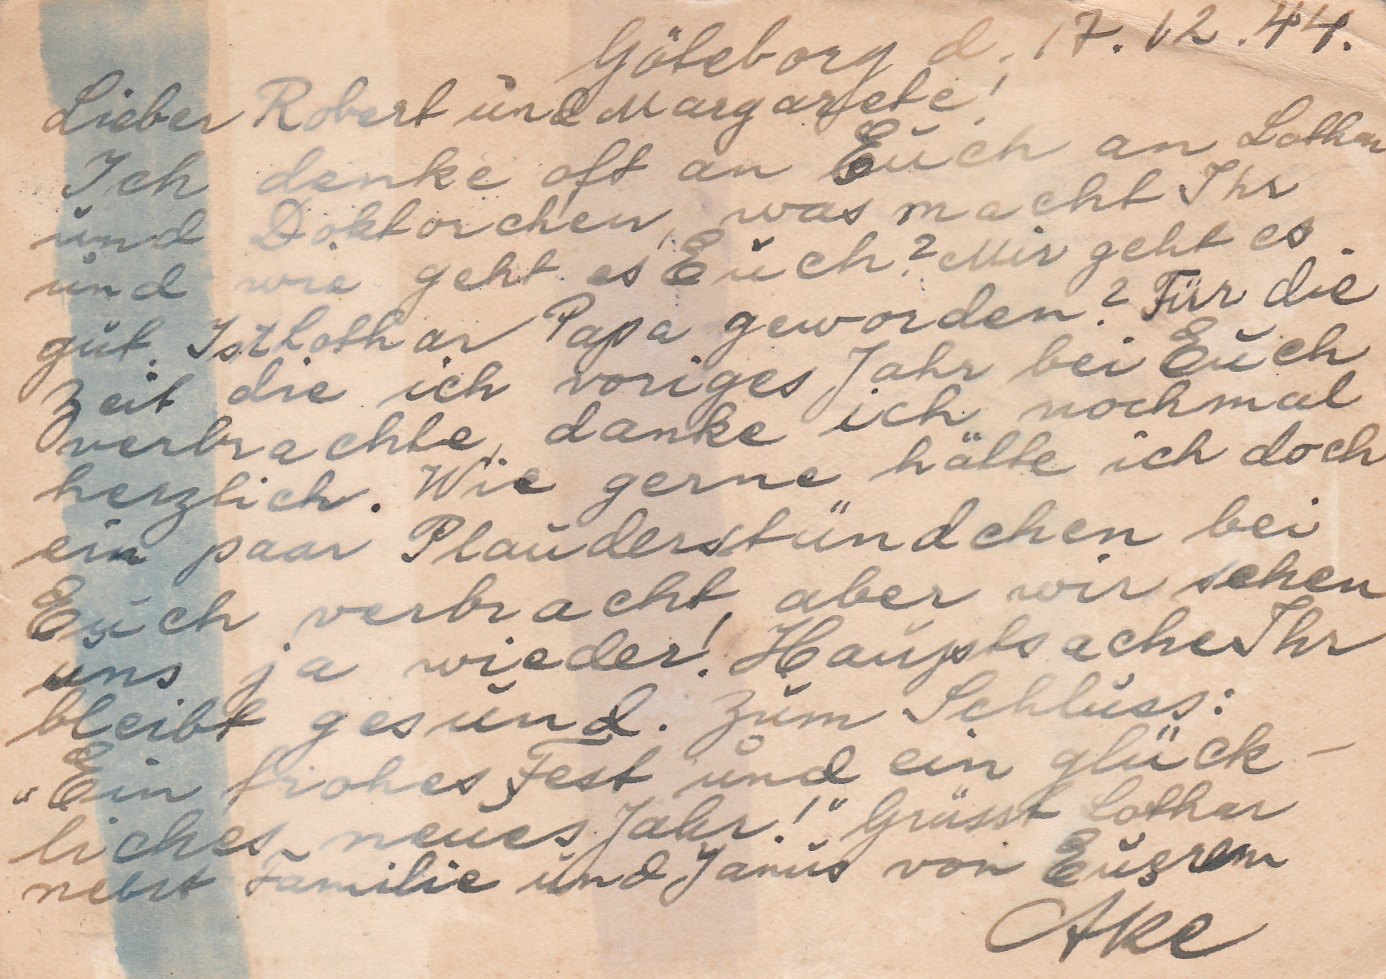 Göteborg d. 17.12.44.
Lieber Robert und Margarete!
Ich denke oft an Euch an Lothar
und Doktorchen, was macht Ihr
und wie geht es Euch? Mir geht es
gut. Ist Lothar Papa geworden? Für die
Zeit die ich voriges Jahr bei Euch
verbrachte, danke ich nochmal
herzlich. Wie gerne hätte ich doch
ein paar Plauderstündchen bei
Euch verbracht, aber wir sehen
uns ja wieder! Hauptsache Ihr
bleibt gesund. Zum Schluss:
„Ein frohes Fest und ein glück-
liches neues Jahr!" Grüsst Lothar
nebst Familie und Janus von Eurem
Ake